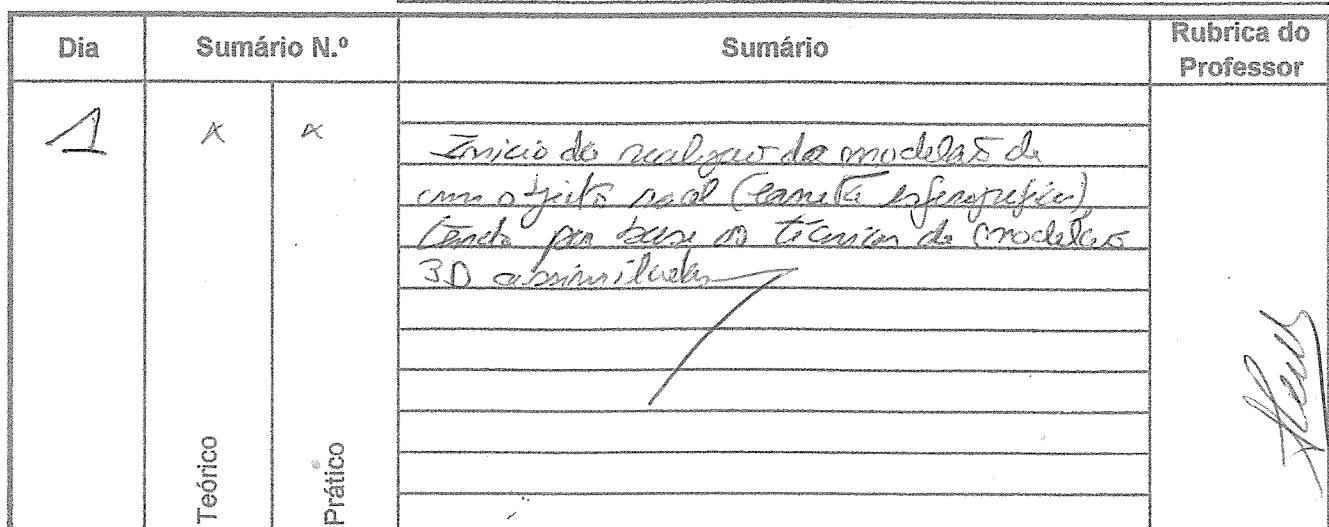 Dia Sumário N.º Sumário Rubrica do Professor
1 x x
Início da realização da modelação de
um objeto real (caneta esferográfica),
tendo por base as técnicas de modelação
3D assimiladas
Teórico Prático